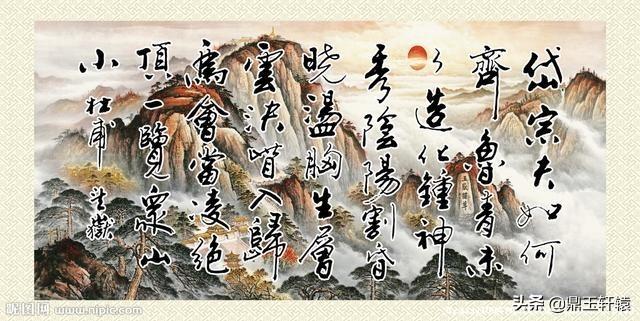 岱宗夫如何
齊魯青未
了造化鍾神
秀陰陽割昏
曉盪胸生層
雲決眥入歸
鳥會當凌絕
頂一覽眾山
小杜甫望嶽
昵图网 www.nipic.com
头条 @鼎玉轩辕